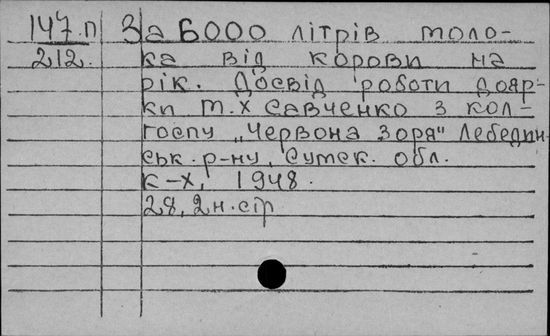 147.п За 6000 літрів моло-
212. ка від корови на
рік. Досвід роботи дояр-
ки Т.Х Савченко з кол-
госпу „Червона зоря" Лебедин-
ськ. р-ну, Сумск. обл.
К-Х, 1948.
28, 2н.стр